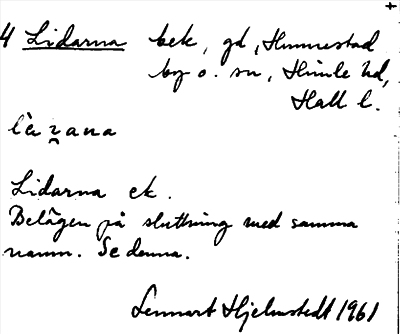 4 Lidarna bek, gd, Hunnestad
by o. sn, Himle hd,
Hall l.
Lidarna ek.
Belägen på sluttning med samma
namn. Se denna.
Lennart Hjelmstedt 1961